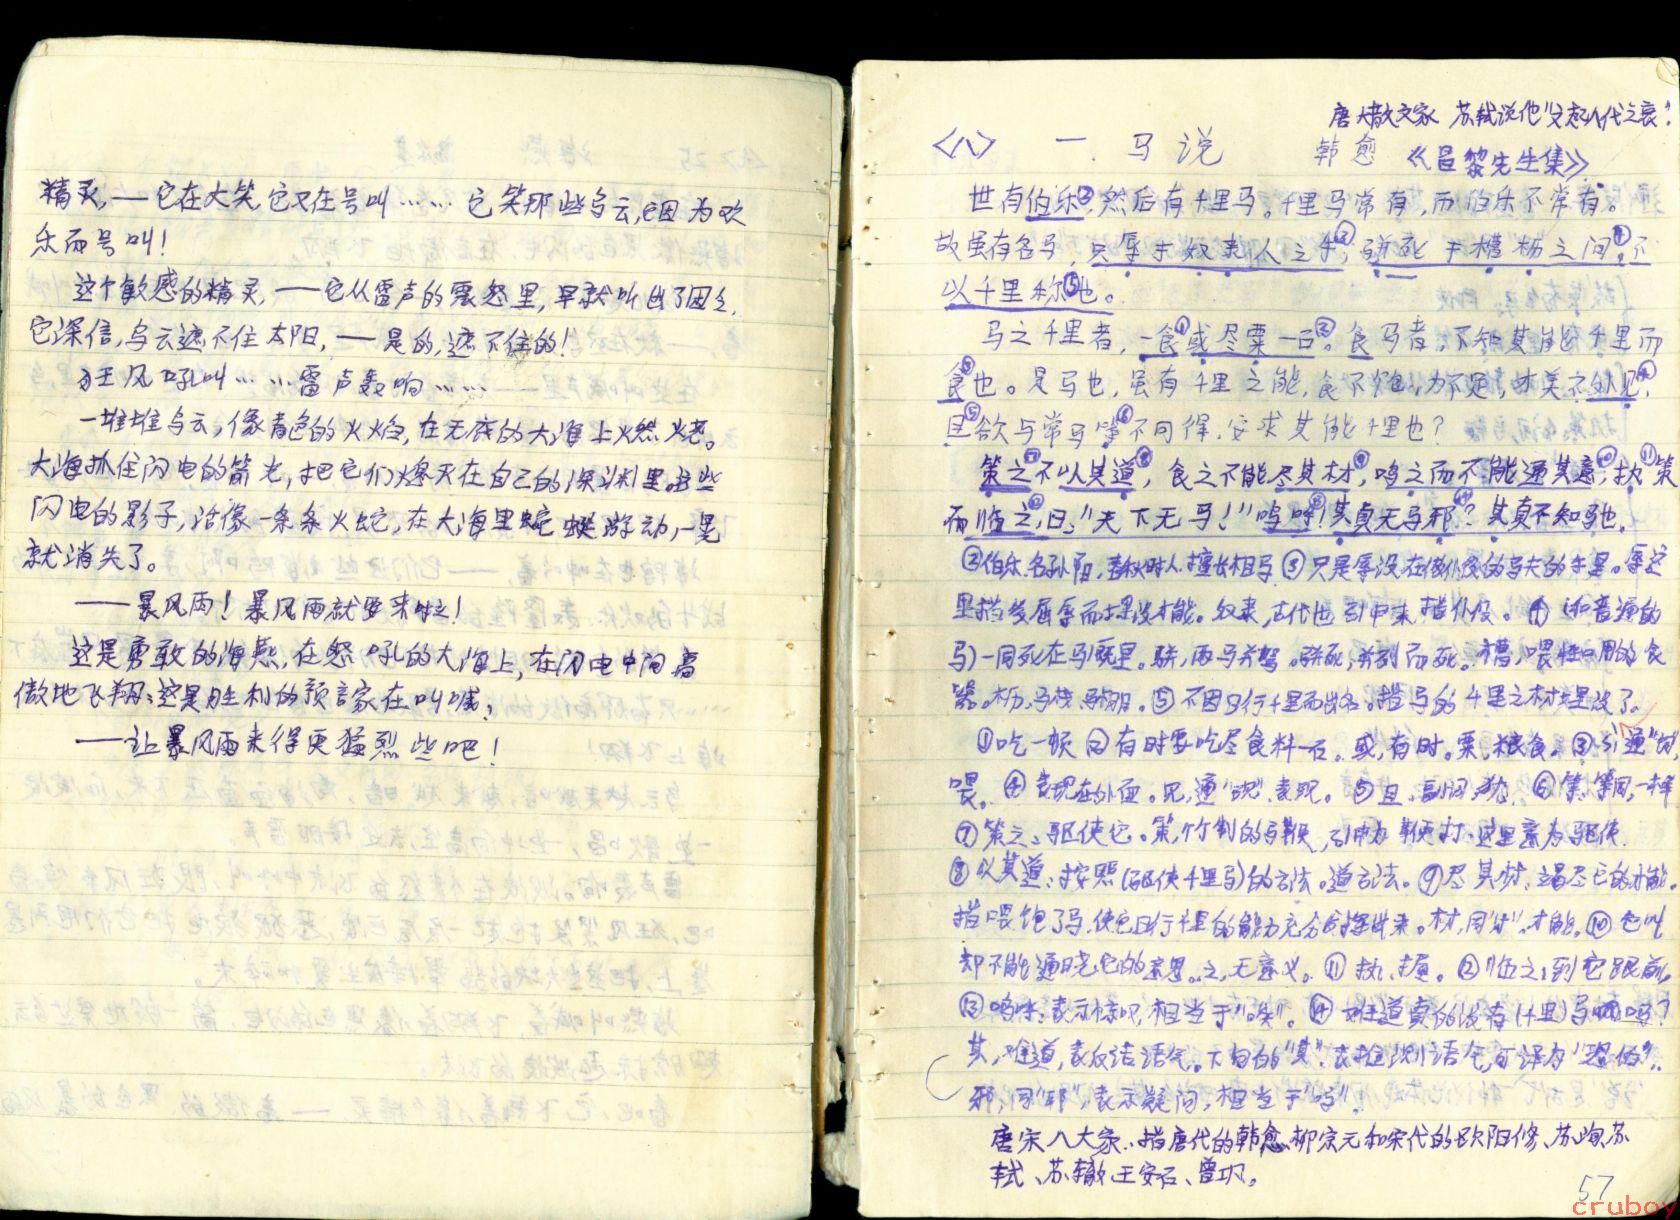 精灵,——它在大笑,它又在号叫……它笑那些乌云,它因为欢
乐而号叫!
这个敏感的精灵,——它从雷声的震怒里,早就听出了困乏,
它深信,乌云遮不住太阳,——是的,遮不住的!
狂风吼叫……雷声轰响……
一堆堆乌云,像青色的火焰,在无底的大海上燃烧。
大海抓住闪电的箭光,把它们熄灭在自己的深渊里。这些
闪电的影子,活像一条条火蛇,在大海里蜿蜒游动,一晃
就消失了。
——暴风雨!暴风雨就要来啦!
这是勇敢的海燕,在怒吼的大海上,在闪电中间高
傲地飞翔;这是胜利的预言家在叫喊:
——让暴风雨来得更猛烈些吧!
唐大散文家 苏轼说他"文起八代之衰".
<八> 一. 马说 韩愈 《昌黎先生集》
世有伯乐②,然后有千里马。千里马常有,而伯乐不常有。
故虽有名马,只辱于奴隶人之手③,骈死于槽枥之间④,不
以千里称⑤也。
马之千里者,一食①或尽粟一石②。食马者,不知其能千里而
食③也。是马也,虽有千里之能,食不饱,力不足,才美不外见④,
且⑤欲与常马等⑥不可得,安求其能千里也?
策之⑦不以其道⑧,食之不能尽其材⑨,鸣之而不能通其意⑩,执⑪策
而临之⑫,曰:"天下无马!"呜呼⑬!其真无马邪⑭?其真不知马也.
②伯乐,名孙阳,春秋时人,擅长相马 ③只是辱没在做仆役的马夫的手里。辱这
里指受屈辱而埋没才能。奴隶,古代也引申来指仆役。④(和普通的
马)一同死在马厩里。骈,两马并驾。骈死,并列而死。槽,喂牲口用的食
器。枥,马栈,马棚。⑤不因日行千里而出名。指马的千里之材埋没了。
①吃一顿 ②有时要吃尽食料一石。或,有时。粟,粮食。③ 通"饲",
喂。④表现在外面。见,通"现",表现。⑤且,副词,犹 ⑥等,等同,一样
⑦策之:驱使它。策,竹制的马鞭,引申为鞭打,这里意为驱使.
⑧以其道:按照(驱使千里马)的方法。道方法。⑨尽其材,竭尽它的才能。
指喂饱了马,使它日行千里的能力充分发挥出来。材,同"才",才能。⑩它叫
却不能通晓它的意思。之,无意义。⑪执,拿。⑫临之:到它跟前。
⑬呜呼:表示惊叹,相当于"唉"。⑭难道真的没有(千里)马吗?
其,难道,表反诘语气。下句的"其"表推测语气可译为"恐怕".
邪,同"耶",表示疑问,相当于"吗".
唐宋八大家:指唐代的韩愈、柳宗元和宋代的欧阳修、苏洵、苏
轼、苏辙、王安石、曾巩。
57
cruboy